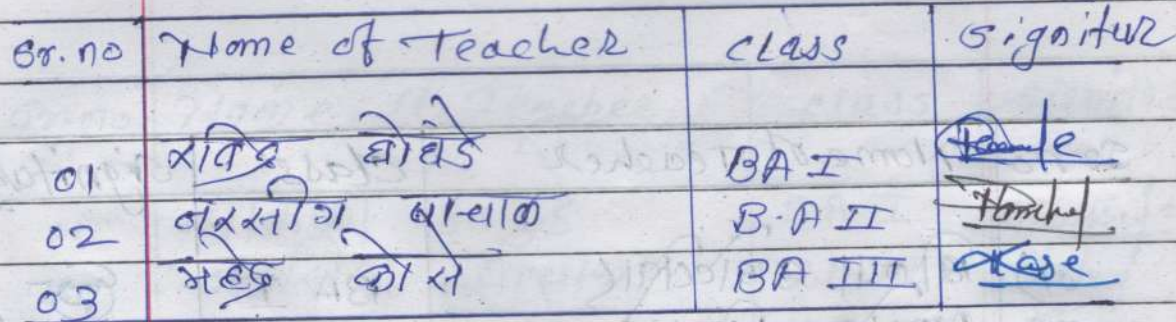 Sr. no Name of Teacher class Signitur
01 रविंद्र घोघंडे BA I
02 नरसींग बाचाळ B.A II
03 महेंद्र कोसे BA III Kase